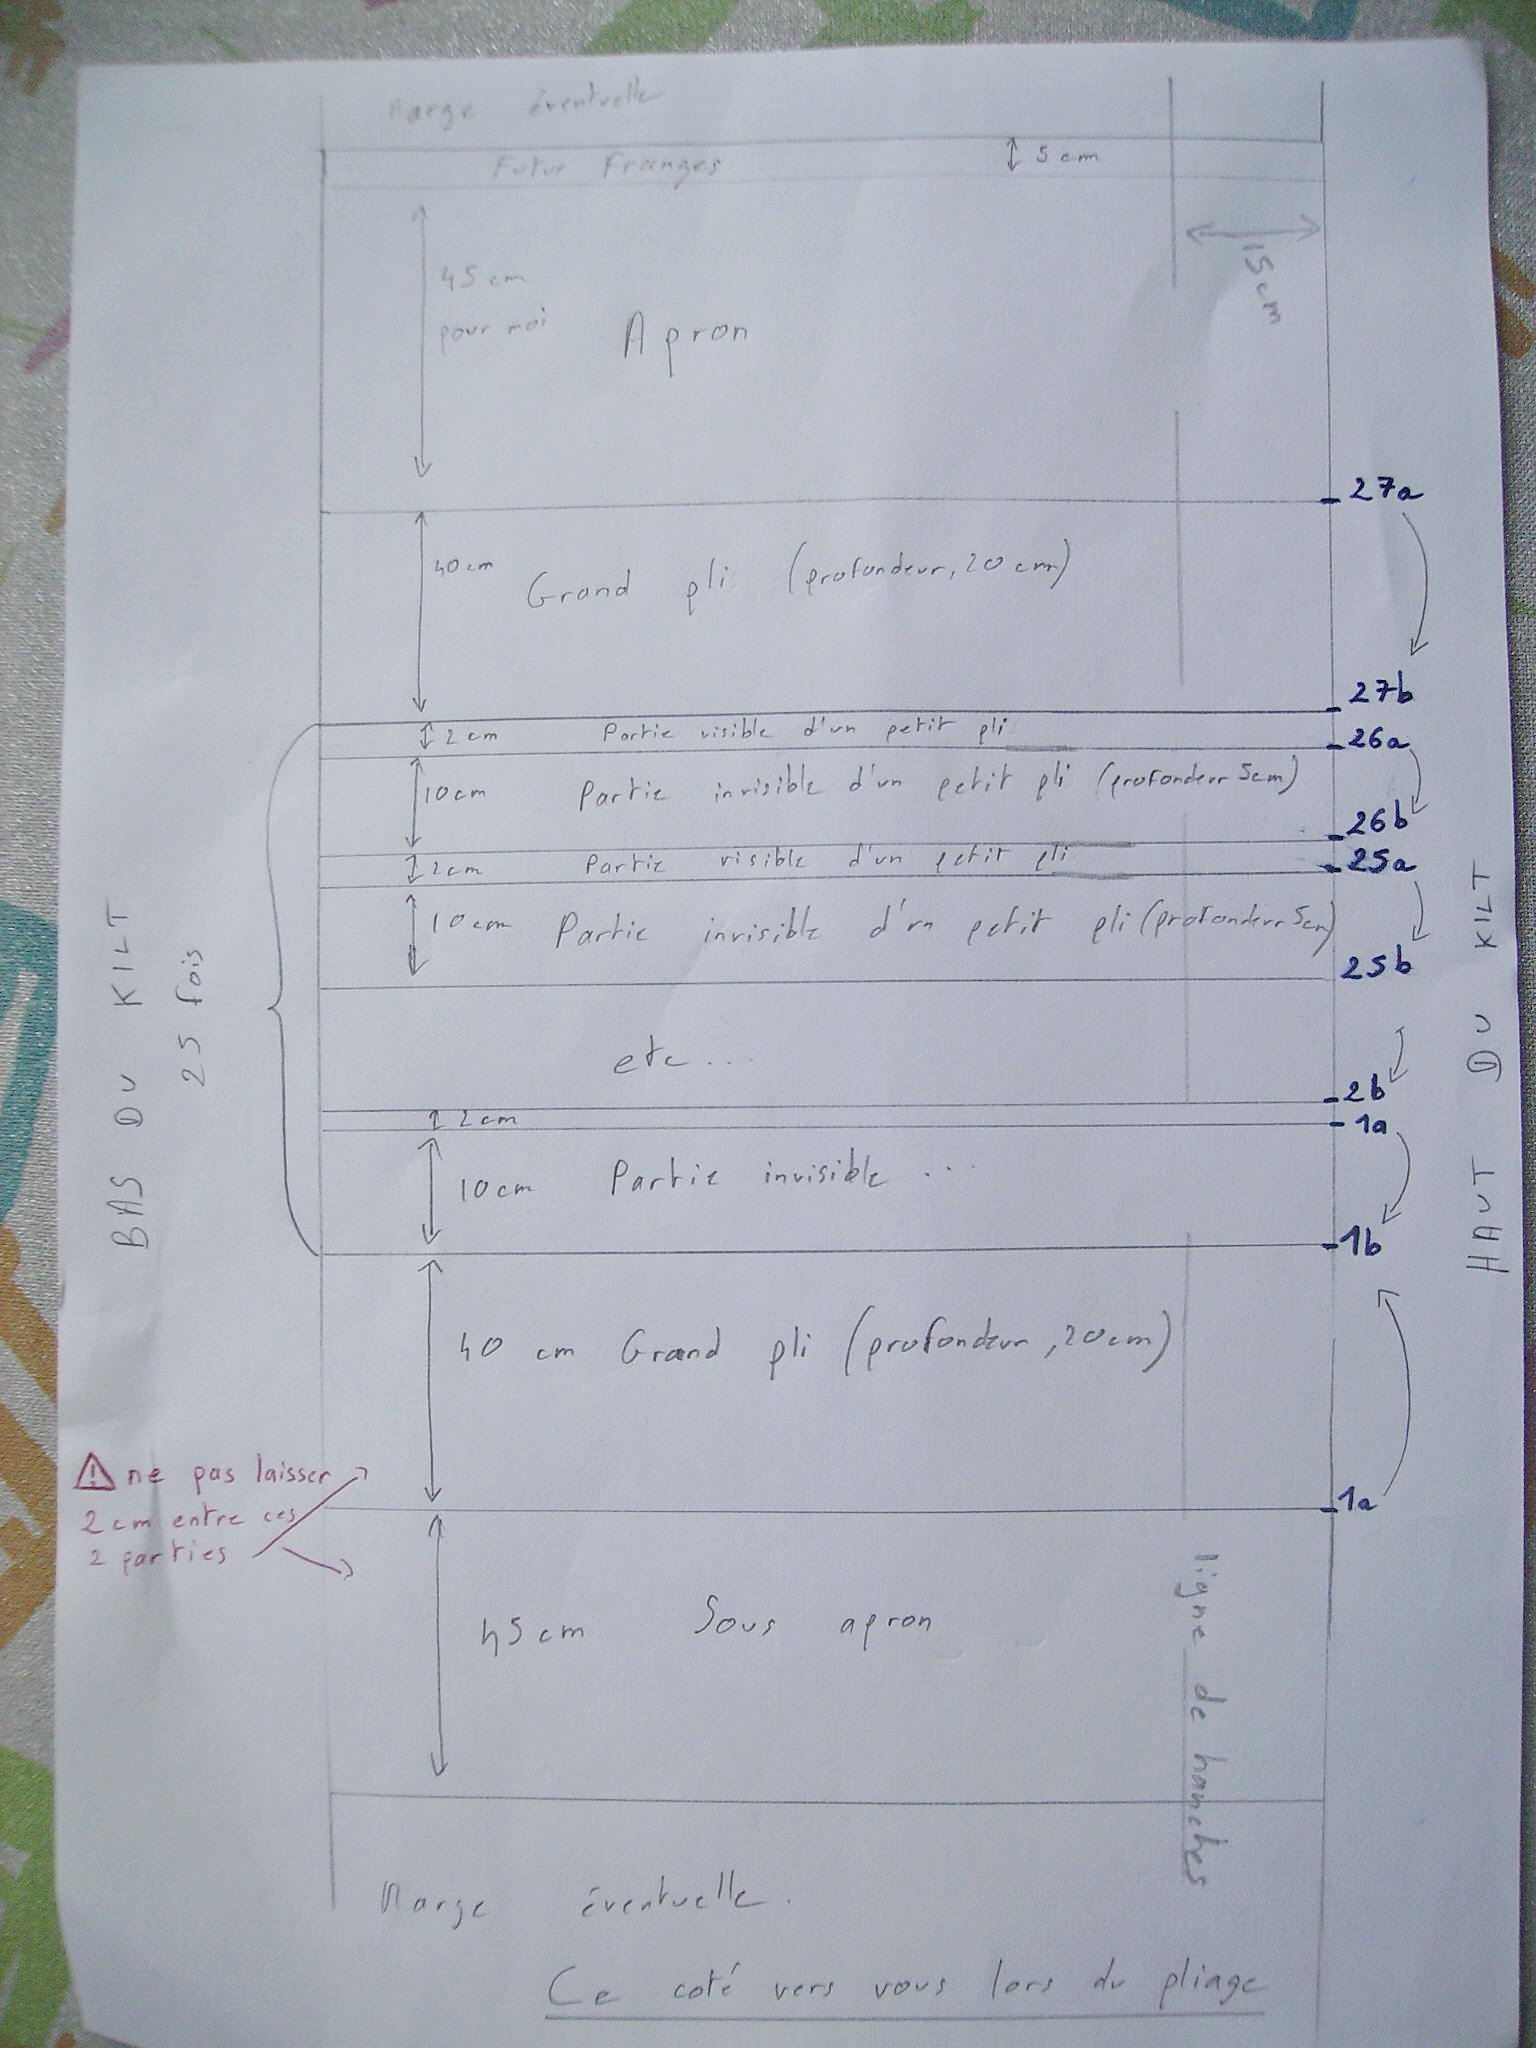 Marge éventuelle
Futur Franges
5 cm
15cm
45 cm
pour moi
Apron
27a
40cm
Grand pli (profondeur, 20 cm)
27b
2 cm
Partie visible d'un petit pli
26a
10cm
Partie invisible d'un petit pli (profondeur 5cm)
26b
2cm
Partie visible d'un petit pli
25a
10cm
Partie invisible d'un petit pli (profondeur 5cm)
25b
BAS DU KILT
25 fois
HAUT DU KILT
etc...
2b
2cm
1a
10cm
Partie invisible ...
1b
40 cm Grand pli (profondeur, 20cm)
ne pas laisser
2 cm entre ces
2 parties
1a
45cm
Sous apron
ligne de hanches
Marge éventuelle.
Ce coté vers vous lors du pliage